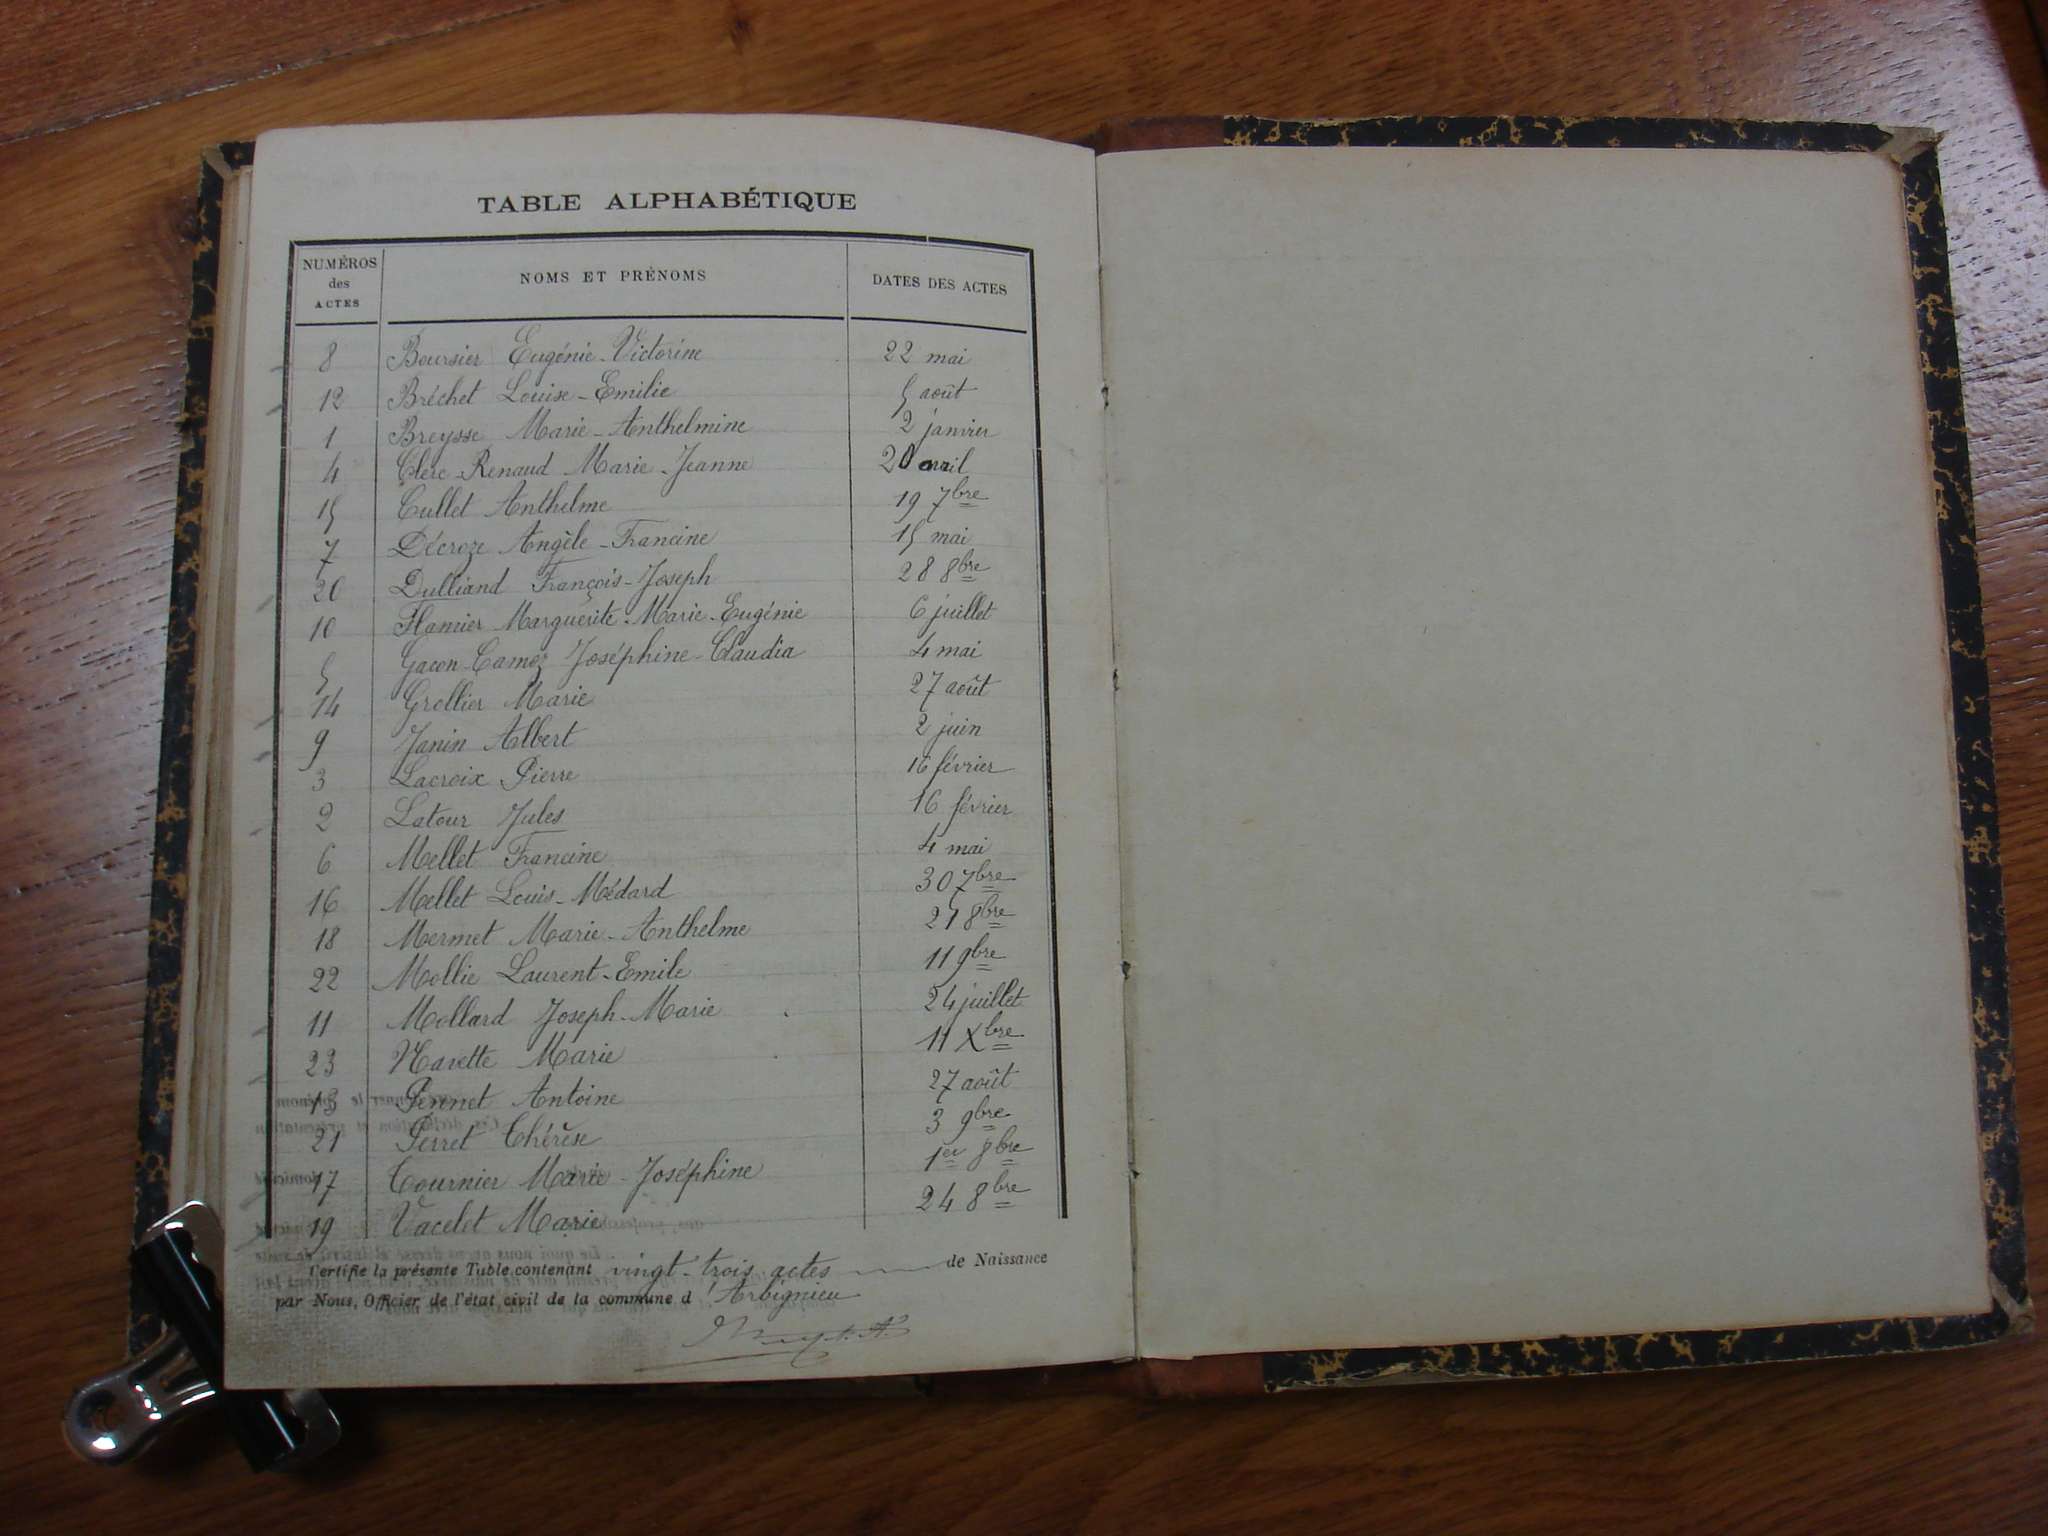 TABLE ALPHABÉTIQUE
NUMÉROS des ACTES NOMS ET PRÉNOMS DATES DES ACTES
8 Boursier Eugénie-Victorine 22 mai
12 Bréchet Louise-Emilie 5 août
1 Breysse Marie-Anthelmine 2 janvier
4 Clerc-Renaud Marie-Jeanne 20 avril
15 Cullet Anthelme 19 7bre
7 Décroze Angèle-Francine 15 mai
20 Dulliand François-Joseph 28 8bre
10 Flamier Marguerite-Marie-Eugénie 6 juillet
5 Gacon-Camoz Joséphine-Claudia 4 mai
14 Grellier Marie 27 août
9 Janin Albert 2 juin
3 Lacroix Pierre 16 février
2 Latour Jules 16 février
6 Mellet Francine 4 mai
16 Mellet Louis-Médard 30 7bre
18 Mermet Marie-Anthelme 21 8bre
22 Mollie Laurent-Emile 11 9bre
11 Mollard Joseph-Marie 24 juillet
23 Navette Marie 11 Xbre
13 Pennet Antoine 27 août
21 Perret Thérèse 3 9bre
17 Tournier Marie-Joséphine 1er 8bre
19 Vacelet Marie 24 8bre
Certifie la présente Table contenant vingt-trois actes de Naissance
par Nous, Officier de l'état civil de la commune d'Arbignieu